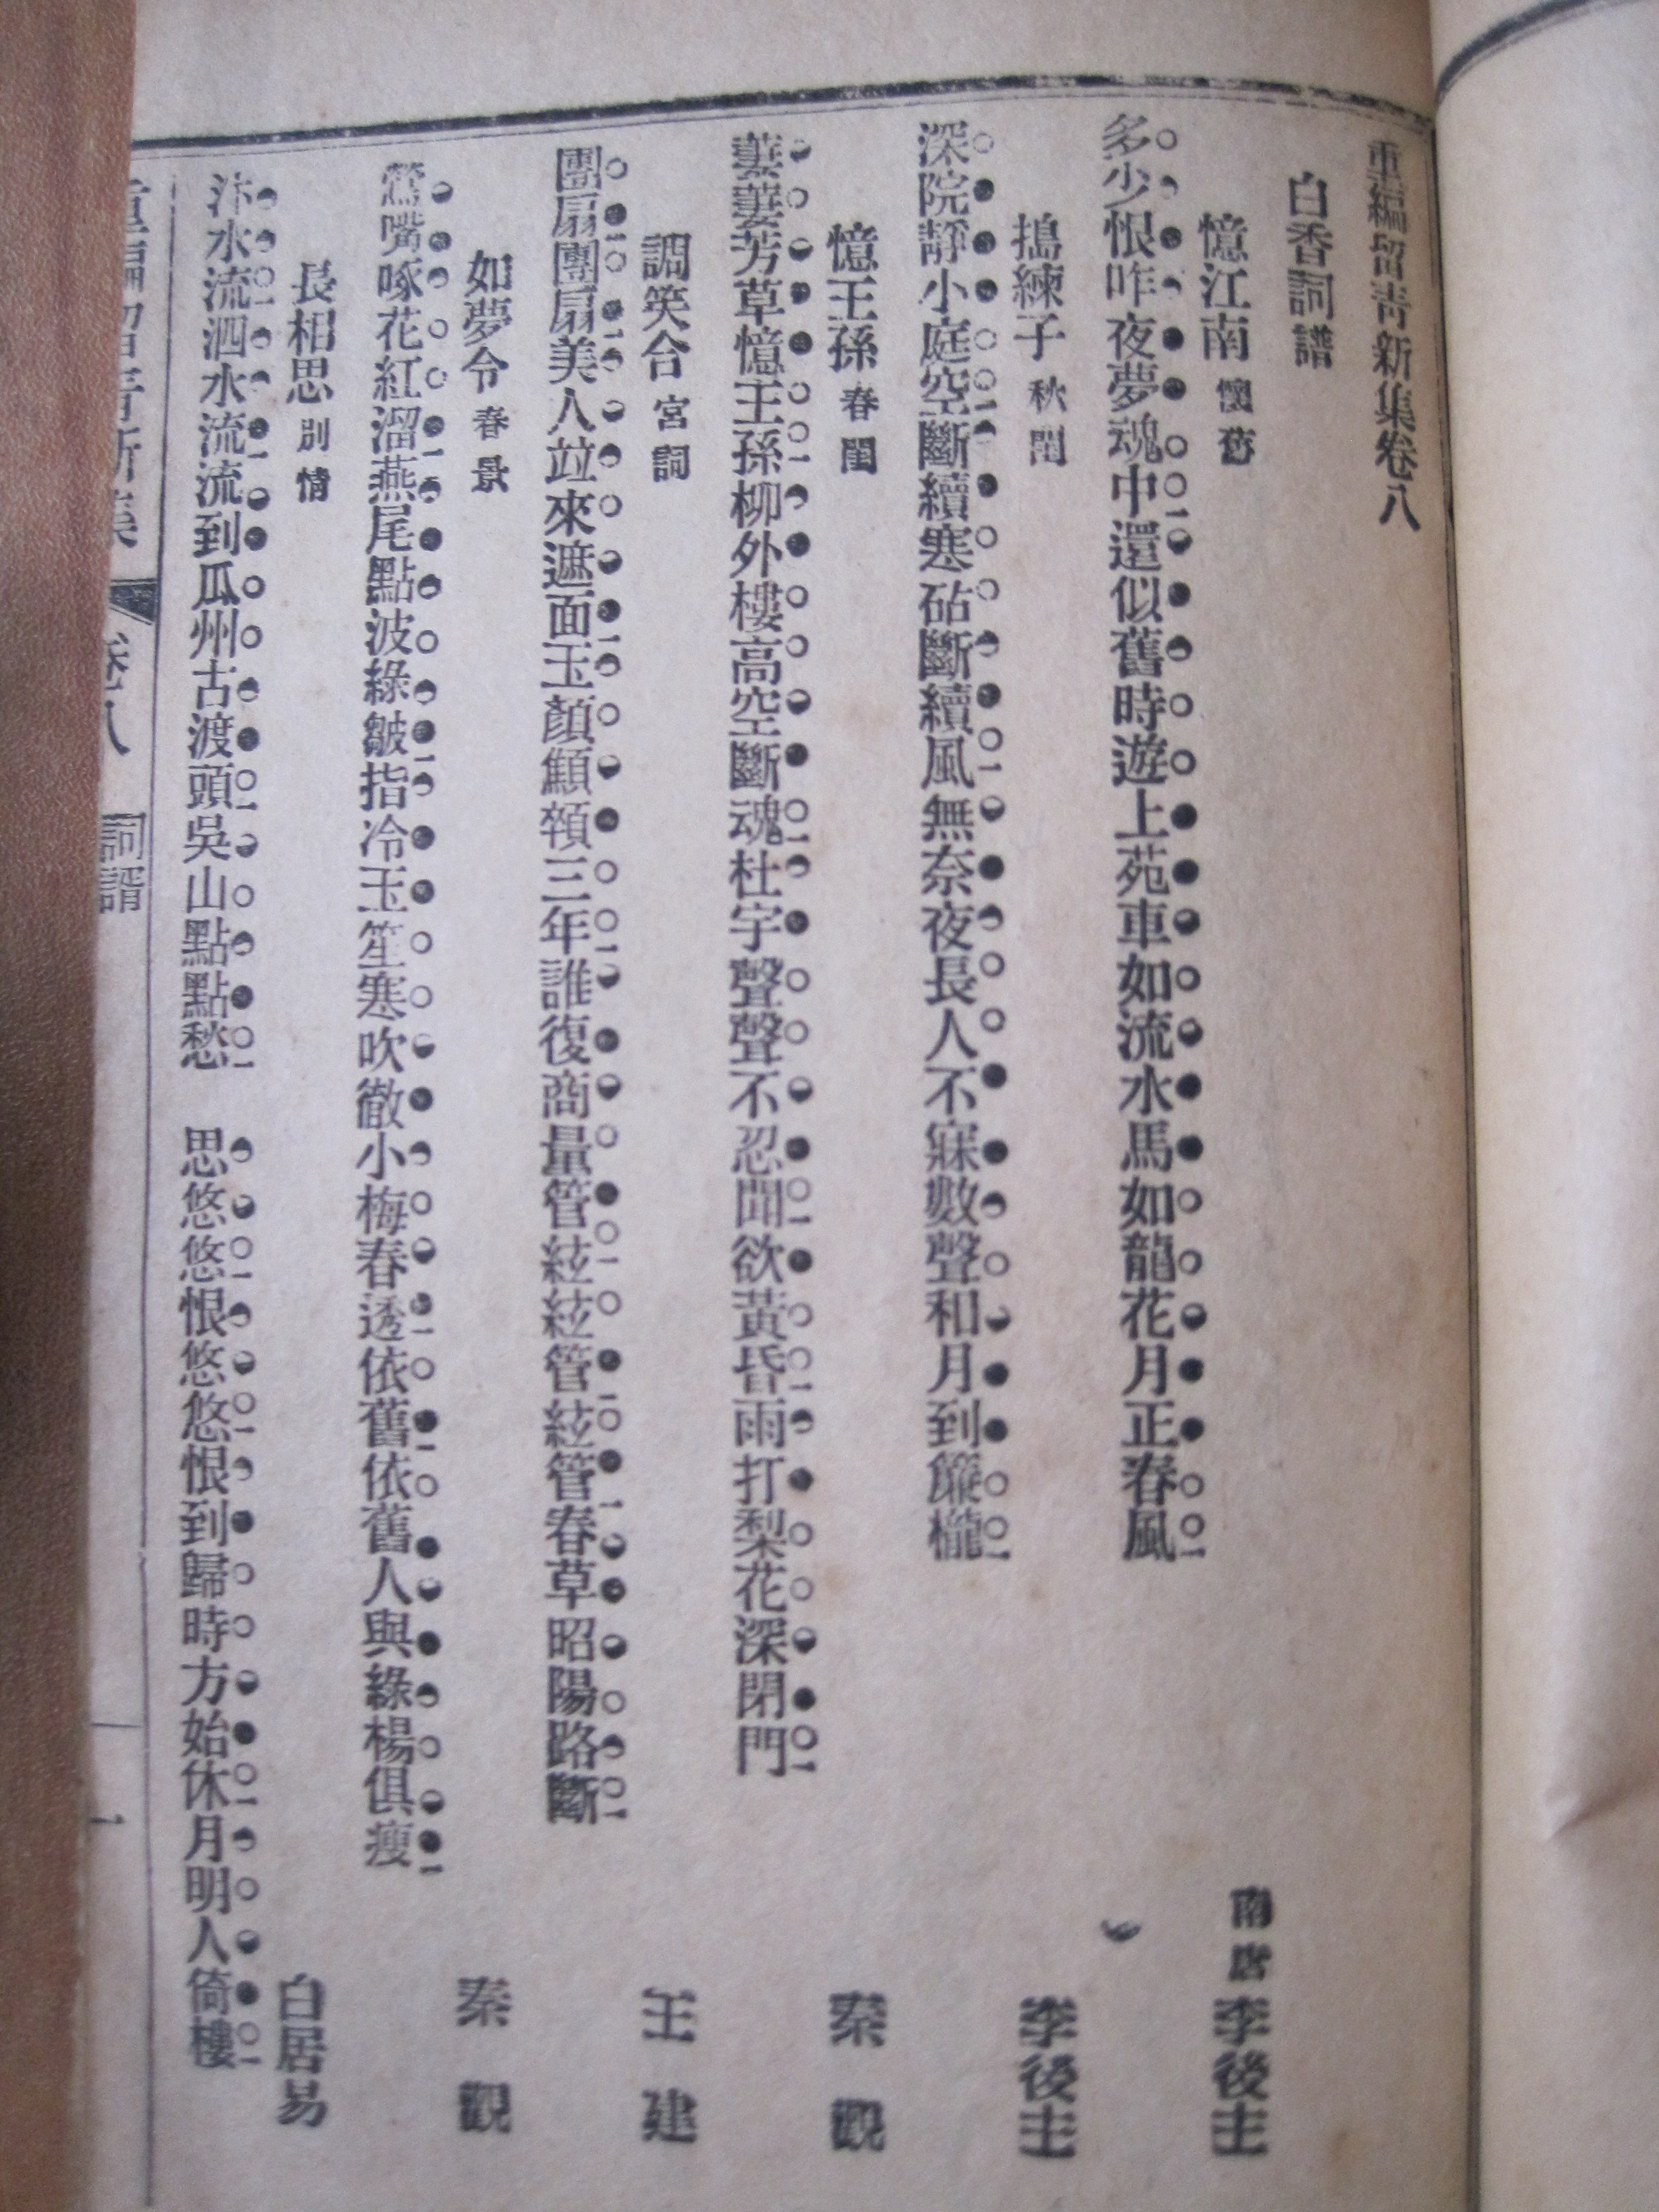 重編留青新集卷八
白香詞譜
憶江南 懷舊 南唐 李後主
多少恨昨夜夢魂中還似舊時遊上苑車如流水馬如龍花月正春風
搗練子 秋閨 李後主
深院靜小庭空斷續寒砧斷續風無奈夜長人不寐數聲和月到簾櫳
憶王孫 春閨 秦觀
萋萋芳草憶王孫柳外樓高空斷魂杜宇聲聲不忍聞欲黃昏雨打梨花深閉門
調笑令 宮詞 王建
團扇團扇美人竝來遮面玉顏顦顇三年誰復商量管絃絃管絃管春草昭陽路斷
如夢令 春景 秦觀
鶯嘴啄花紅溜燕尾點波綠皺指冷玉笙寒吹徹小梅春透依舊依舊人與綠楊俱瘦
長相思 別情 白居易
汴水流泗水流流到瓜州古渡頭吳山點點愁 思悠悠恨悠悠恨到歸時方始休月明人倚樓
重編留青新集 卷八 詞譜 一